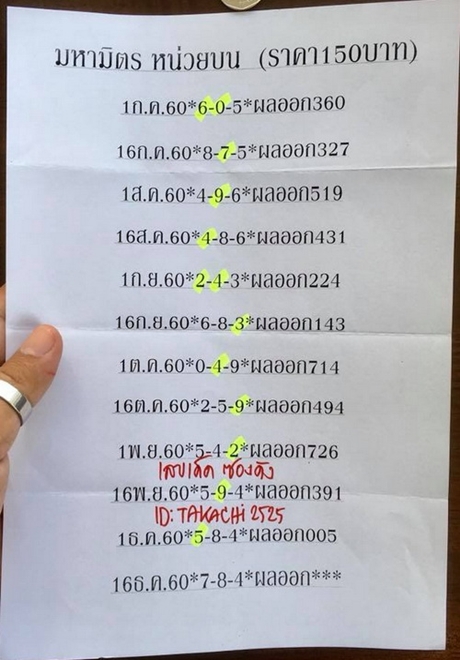 มหามิตร หน่วยบน (ราคา150บาท)
1ก.ค.60*6-0-5*ผลออก360
16ก.ค.60*8-7-5*ผลออก327
1ส.ค.60*4-9-6*ผลออก519
16ส.ค.60*4-8-6*ผลออก431
1ก.ย.60*2-4-3*ผลออก224
16ก.ย.60*6-8-3*ผลออก143
1ต.ค.60*0-4-9*ผลออก714
16ต.ค.60*2-5-9*ผลออก494
1พ.ย.60*5-4-2*ผลออก726
เลขเด็ด ซองดัง
16พ.ย.60*5-9-4*ผลออก391
ID: TAKACHI 2525
1ธ.ค.60*5-8-4*ผลออก005
16ธ.ค.60*7-8-4*ผลออก***